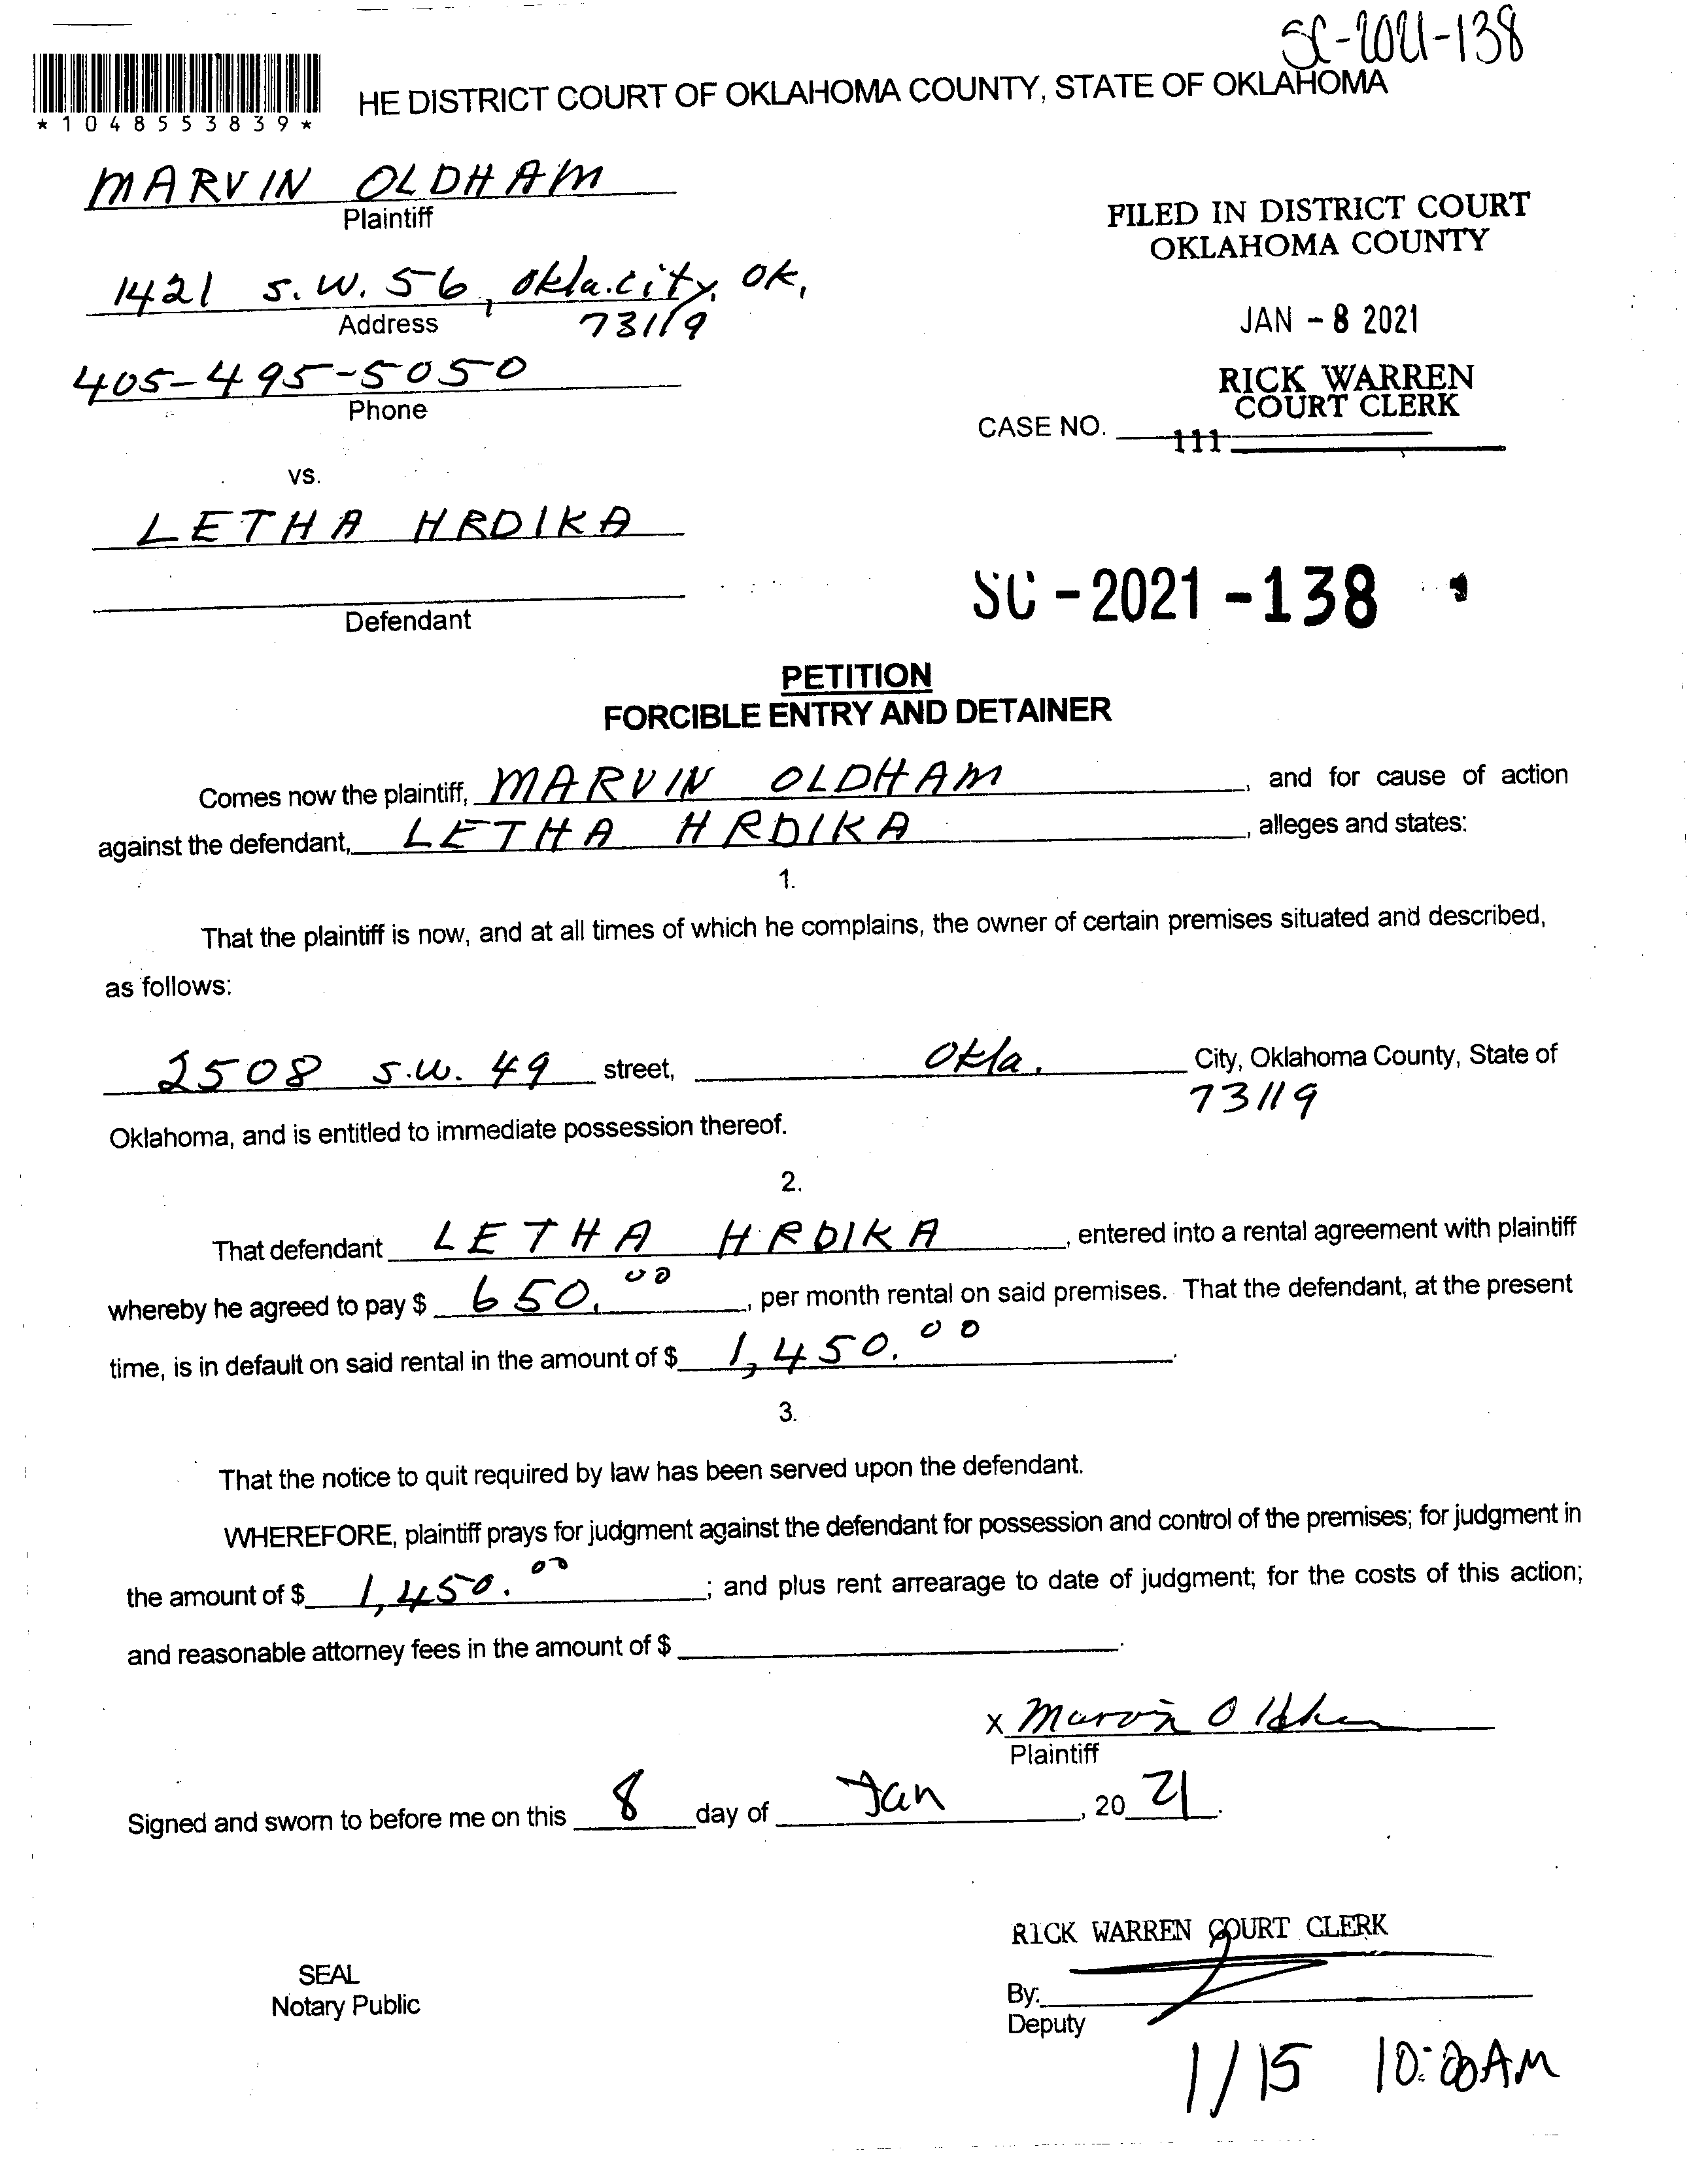 SC-2021-138
*1048553839*
HE DISTRICT COURT OF OKLAHOMA COUNTY, STATE OF OKLAHOMA
MARVIN OLDHAM
Plaintiff
FILED IN DISTRICT COURT
OKLAHOMA COUNTY
1421 S.W. 56, Okla.city, OK,
Address 73119
JAN - 8 2021
405-495-5050
Phone
RICK WARREN
COURT CLERK
CASE NO.
111
vs.
LETHA HRDIKA
Defendant
SC - 2021 - 138
PETITION
FORCIBLE ENTRY AND DETAINER
Comes now the plaintiff, MARVIN OLDHAM, and for cause of action
against the defendant, LETHA HRDIKA, alleges and states:
1.
That the plaintiff is now, and at all times of which he complains, the owner of certain premises situated and described,
as follows:
2508 S.W. 49 street, Okla. City, Oklahoma County, State of
73119
Oklahoma, and is entitled to immediate possession thereof.
2.
That defendant LETHA HRDIKA, entered into a rental agreement with plaintiff
whereby he agreed to pay $ 650.00, per month rental on said premises. That the defendant, at the present
time, is in default on said rental in the amount of $ 1,450.00.
3.
That the notice to quit required by law has been served upon the defendant.
WHEREFORE, plaintiff prays for judgment against the defendant for possession and control of the premises; for judgment in
the amount of $ 1,450.00; and plus rent arrearage to date of judgment; for the costs of this action;
and reasonable attorney fees in the amount of $ .
x Marvin Oldham
Plaintiff
Signed and sworn to before me on this 8 day of Jan, 20 21.
RICK WARREN COURT CLERK
SEAL
Notary Public
By:
Deputy
1/15 10:00AM